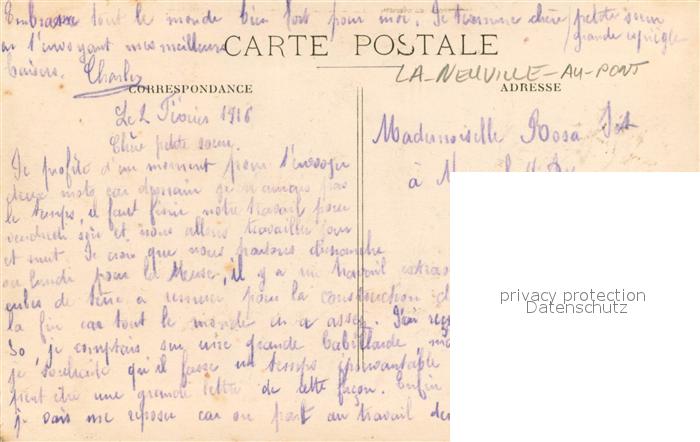 Embrasse tout le monde bien fort pour moi. Je termine chère petite sœur
en t'envoyant mes meilleurs grande espiègle
baisers. Charles
CARTE POSTALE
LA-NEUVILLE-AU-PONT
CORRESPONDANCE
ADRESSE
Le 2 Février 1916
Chère petite soeur.
Mademoiselle Rosa
à
Je profite d'un moment pour t'envoyer
deux mots car demain je n'aurais pas
le temps, il faut finir notre travail pour
vendredi soir et nous allons travailler jour
et nuit. Je crois que nous partons dimanche
ou lundi pour la Meuse, il y a un travail
de terre a remuer pour la construction
la fin car tout le monde en a assez. J'ai
je comptais sur une grande
je souhaite qu'il fasse un temps épouvantable
peut être une grande lettre de cette façon. Enfin
je vais me reposer car on part au travail
privacy protection
Datenschutz